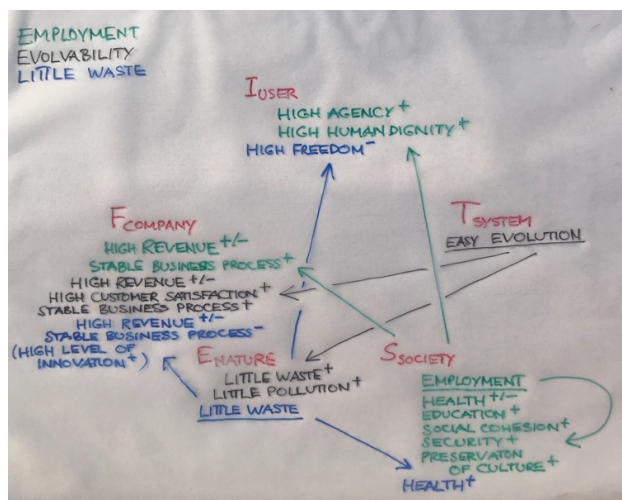 EMPLOYMENT
EVOLVABILITY
LITTLE WASTE
IUSER
HIGH AGENCY+
HIGH HUMAN DIGNITY+
HIGH FREEDOM-
FCOMPANY
HIGH REVENUE+/-
STABLE BUSINESS PROCESS+
HIGH REVENUE+/-
HIGH CUSTOMER SATISFACTION+
STABLE BUSINESS PROCESS+
HIGH REVENUE+/-
STABLE BUSINESS PROCESS-
(HIGH LEVEL OF
INNOVATION+)
TSYSTEM
EASY EVOLUTION
ENATURE
LITTLE WASTE+
LITTLE POLLUTION+
LITTLE WASTE
SSOCIETY
EMPLOYMENT
HEALTH+/-
EDUCATION+
SOCIAL COHESION+
SECURITY+
PRESERVATON
OF CULTURE+
HEALTH+